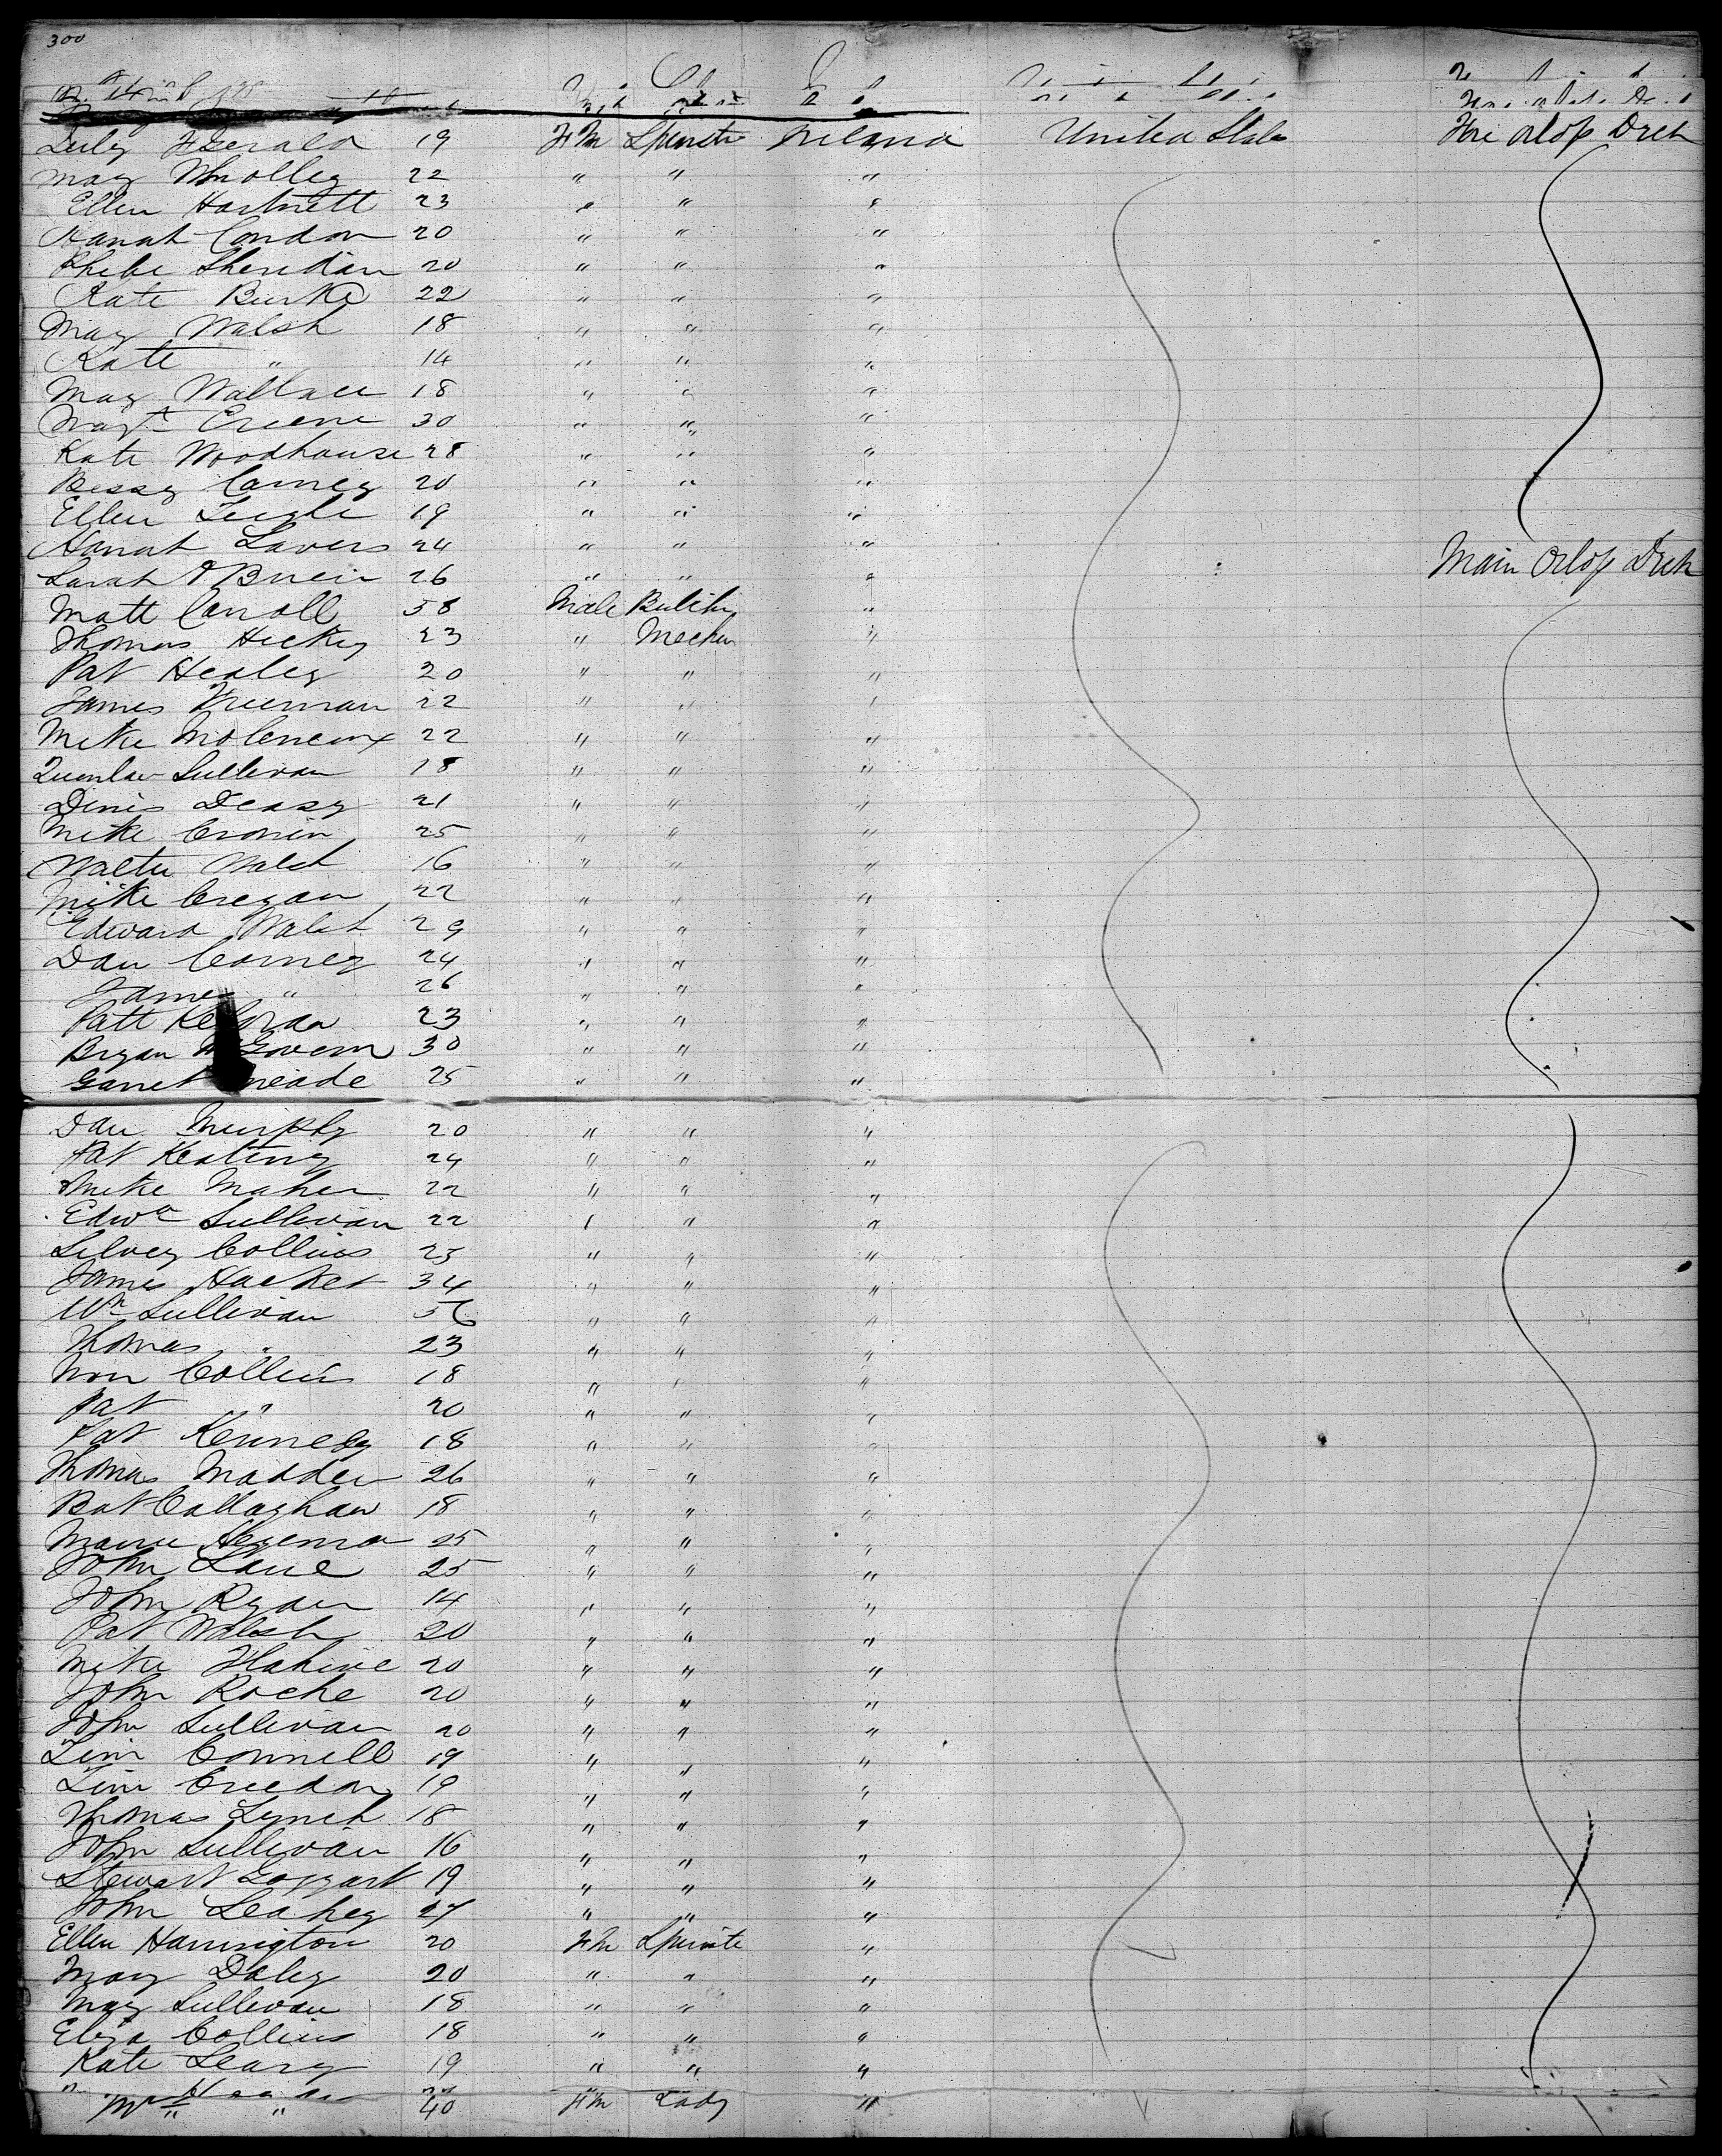 300
July FGerald 19 FM Spinster Ireland United States Fore Orlop Deck
May 22 " " "
Ellen Hartnett 23 " " "
Hanah Condon 20 " " "
Phebe Sheridan 20 " " "
Kate Burke 22 " " "
May Walsh 18 " " "
Kate " 14 " " "
May Wallace 18 " " "
Magt Greene 30 " " "
Kate Woodhouse 28 " " "
Bessy Carney 20 " " "
Ellen 19 " " "
Hanah Lavers 24 " " "
Main Orlop Deck
Sarah OBrein 26 " " "
Matt Carroll 58 Male "
Thomas Hickey 23 " Mechn "
Pat Healey 20 " " "
James 22 " " "
Mike Moleneux 22 " " "
Quinlan Sullivan 18 " " "
Dinis Deasy 21 " " "
Mike Cronin 25 " " "
Walter Walsh 16 " " "
Mike Cregan 22 " " "
Edward Walsh 29 " " "
Dan Carney 24 " " "
James " 26 " " "
Patt 23 " " "
Bryan McGovern 30 " " "
Garret Meade 25 " " "
Dan Murphy 20 " " "
Pat Keating 24 " " "
Mike Maher 22 " " "
Edwd Sullivan 22 " " "
Silvey Collins 25 " " "
James Hacket 34 " " "
Wm Sullivan 56 " " "
Thomas " 23 " " "
Collins 18 " " "
Pat " 20 " " "
Pat Kennedy 18 " " "
Thomas Madden 26 " " "
Bat Callaghan 18 " " "
25 " " "
John Lane 25 " " "
John Ryan 14 " " "
Pat Walsh 20 " " "
Mike Flahive 20 " " "
John Roche 20 " " "
John Sullivan 20 " " "
Tim Connell 19 " " "
Tim Creedon 19 " " "
Thomas Lynch 18 " " "
John Sullivan 16 " " "
Stewart 19 " " "
John Leahey 27 " " "
Ellen Harrington 20 FM Spinste "
May Daley 20 " " "
May Sullivan 18 " " "
Eliza Collins 18 " " "
Kate Leary 19 " " "
Mrs " 40 FM Lady "